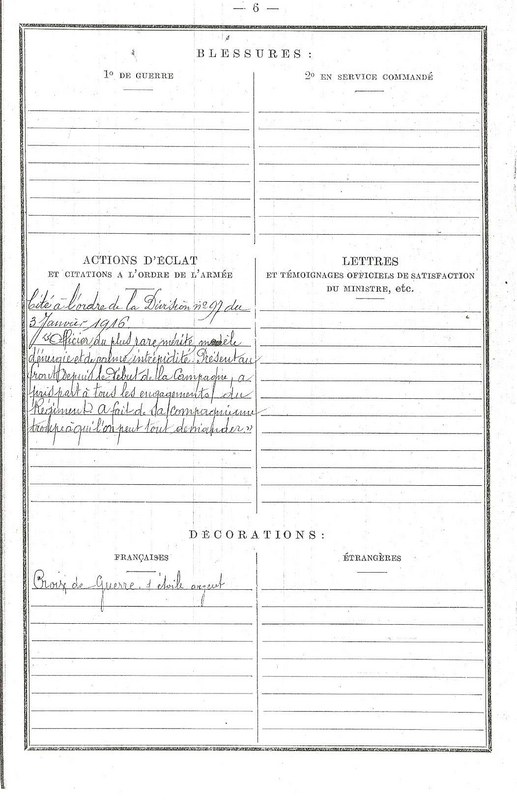 — 6 —
BLESSURES :
1º DE GUERRE
2º EN SERVICE COMMANDÉ
ACTIONS D'ÉCLAT
ET CITATIONS A L'ORDRE DE L'ARMÉE
Cité à l'ordre de la Division nº 97 du
3 Janvier 1916.
« Officier du plus rare mérite modèle
d'énergie et de calme intrépidité. Présent au
front depuis le début de la Campagne, a
pris part à tous les engagements du
Régiment. A fait de sa compagnie une
troupe à qui l'on peut tout demander »
LETTRES
ET TÉMOIGNAGES OFFICIELS DE SATISFACTION
DU MINISTRE, etc.
DÉCORATIONS :
FRANÇAISES
Croix de Guerre, 1 étoile argent
ÉTRANGÈRES